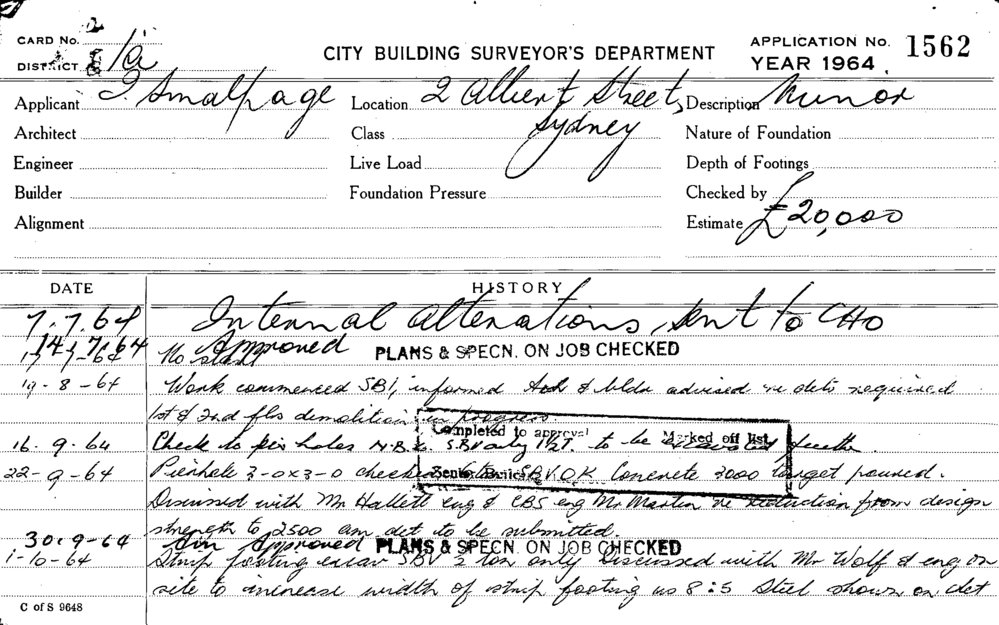 CARD No.
DISTRICT
CITY BUILDING SURVEYOR'S DEPARTMENT
APPLICATION No. 1562
YEAR 1964
Applicant J. Smalpage
Location 2 Albert Street, Sydney
Description Minor
Architect
Class
Nature of Foundation
Engineer
Live Load
Depth of Footings
Builder
Foundation Pressure
Checked by
Alignment
Estimate £20,000
DATE HISTORY
7.7.64 Internal alterations, sent to CHO
14.7.64 Approved PLANS & SPECN. ON JOB CHECKED
No start
19-8-64 Work commenced SBI, informed Arch & bldr advised re dets required
1st & 2nd fls demolition in progress.
Completed to approval Marked off list
16.9.64 Check to pier holes only to be
22-9-64 Pierhole 3-0x3-0 OK Concrete 3000 target poured.
Senior Build
Discussed with Mr Hallett eng & CBS eng Mr Martin re reduction from design
strength to 2500 am. det to be submitted.
30.9-64 Approved PLANS & SPECN. ON JOB CHECKED
1-10-64 Strip footing excav SBV 2 ton only Discussed with Mr Wolf & eng on
site to increase width of strip footing as 8:5 Steel shown on det
C of S 9648